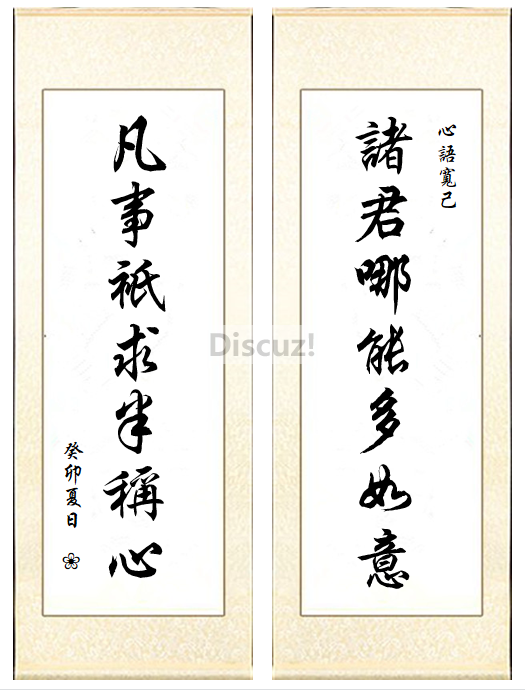 心語寬己
諸君哪能多如意
凡事衹求半稱心
癸卯夏日
Discuz!